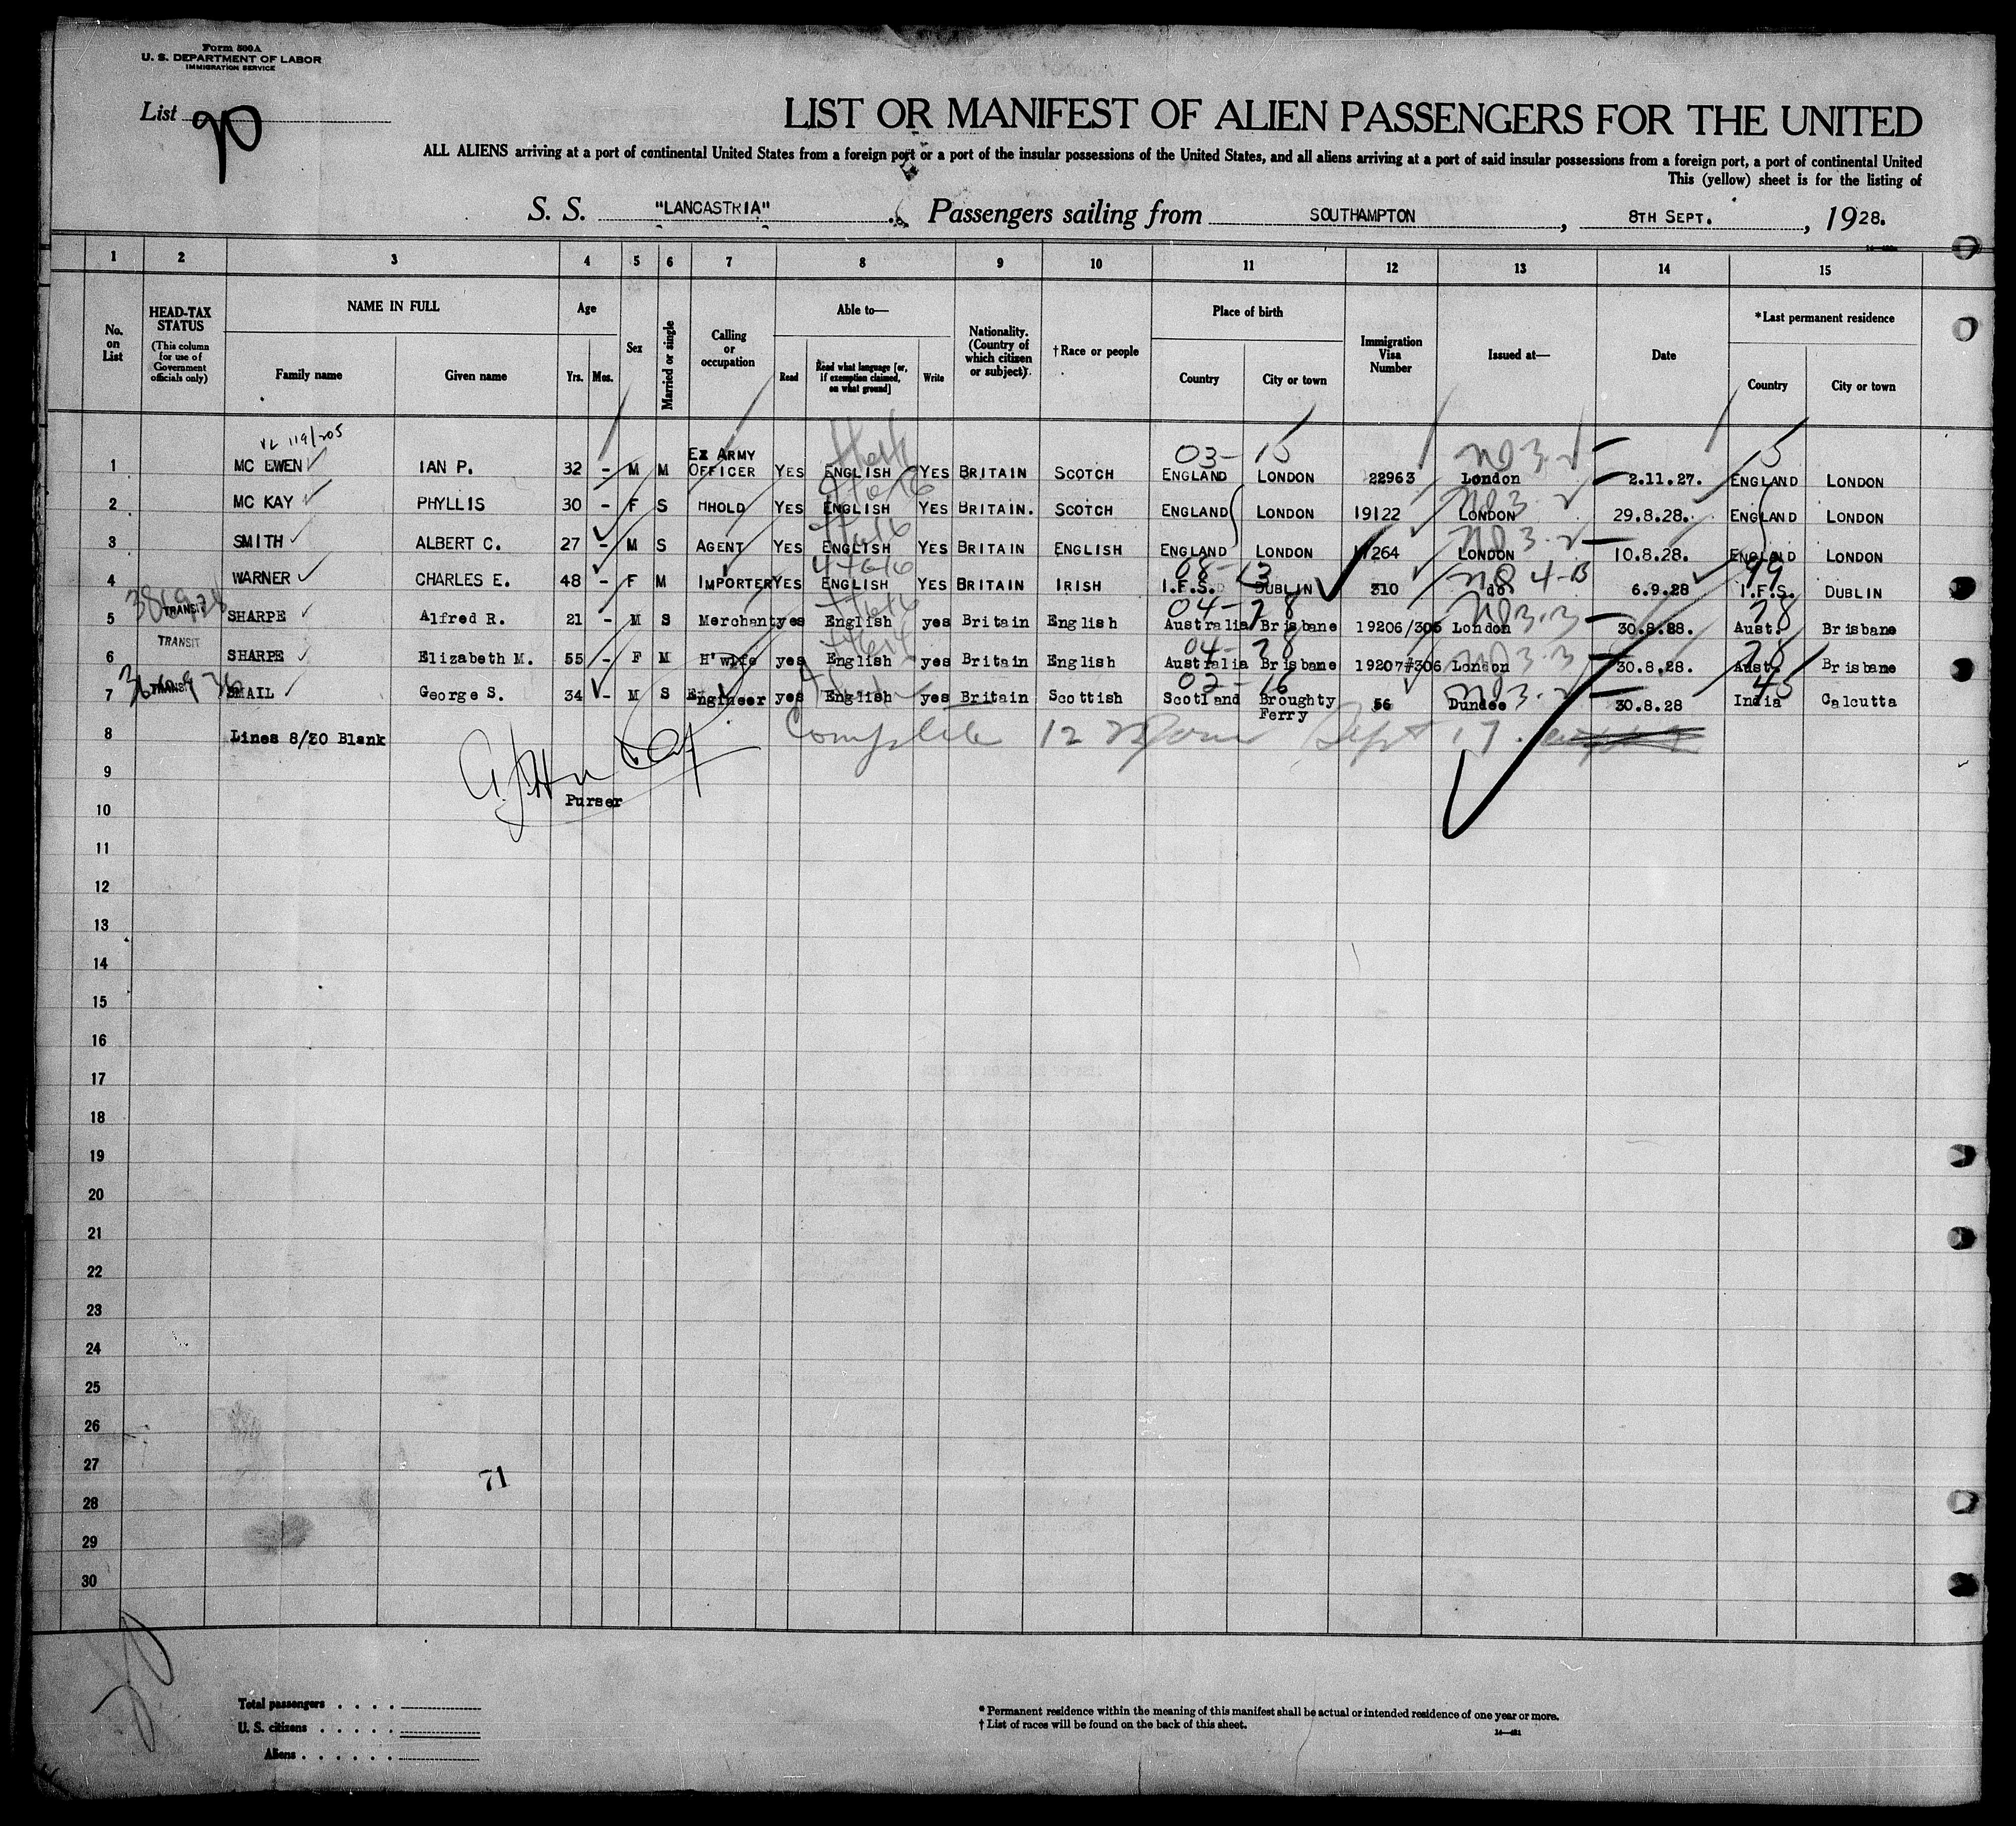 Form 500A
U. S. DEPARTMENT OF LABOR
IMMIGRATION SERVICE
List 90
LIST OR MANIFEST OF ALIEN PASSENGERS FOR THE UNITED
ALL ALIENS arriving at a port of continental United States from a foreign port or a port of the insular possessions of the United States, and all aliens arriving at a port of said insular possessions from a foreign port, a port of continental United
This (yellow) sheet is for the listing of
S. S. "LANCASTRIA" Passengers sailing from SOUTHAMPTON, 8TH SEPT., 1928.
1 2 3 4 5 6 7 8 9 10 11 12 13 14 15
No. on List
HEAD-TAX STATUS (This column for use of Government officials only)
NAME IN FULL
Family name Given name
Age
Yrs. Mos.
Sex
Married or single
Calling or occupation
Able to—
Read Read what language [or, if exemption claimed, on what ground] Write
Nationality. (Country of which citizen or subject)
†Race or people
Place of birth
Country City or town
Immigration Visa Number
Issued at—
Date
*Last permanent residence
Country City or town
VL 119/205
03- 15 15
1 MC EWEN IAN P. 32 - M M EX ARMY OFFICER YES ENGLISH YES BRITAIN SCOTCH ENGLAND LONDON 22963 London 2.11.27. ENGLAND LONDON
2 MC KAY PHYLLIS 30 - F S HHOLD YES ENGLISH YES BRITAIN. SCOTCH ENGLAND LONDON 19122 LONDON 29.8.28. ENGLAND LONDON
3 SMITH ALBERT C. 27 - M S AGENT YES ENGLISH YES BRITAIN ENGLISH ENGLAND LONDON 264 LONDON 10.8.28. ENGLAND LONDON
08-13 99
4 WARNER CHARLES E. 48 - F M IMPORTER YES ENGLISH YES BRITAIN IRISH I.F.S. DUBLIN 310 do 6.9.28 I.F.S. DUBLIN
04-78 78
5 TRANSIT SHARPE Alfred R. 21 - M S Merchant yes English yes Britain English Australia Brisbane 19206/306 London 30.8.28. Aust. Brisbane
04-78 78
6 TRANSIT SHARPE Elizabeth M. 55 - F M H'wife yes English yes Britain English Australia Brisbane 19207#306 London 30.8.28. Aust. Brisbane
02-16 45
7 TRANSIT SMAIL George S. 34 - M S Engineer yes English yes Britain Scottish Scotland Broughty Ferry 56 Dundee 30.8.28 India Calcutta
8 Lines 8/30 Blank
Complete 12 Sept 17.
Purser
9
10
11
12
13
14
15
16
17
18
19
20
21
22
23
24
25
26
27
71
28
29
30
Total passengers . . . .
U. S. citizens . . . . .
Aliens . . . . . .
* Permanent residence within the meaning of this manifest shall be actual or intended residence of one year or more.
† List of races will be found on the back of this sheet.